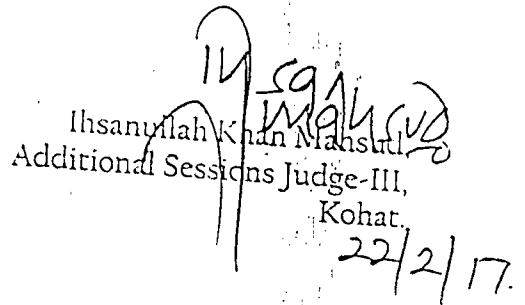 Ihsanullah Khan Mahsud
Additional Sessions Judge-III,
Kohat.
22/2/17.